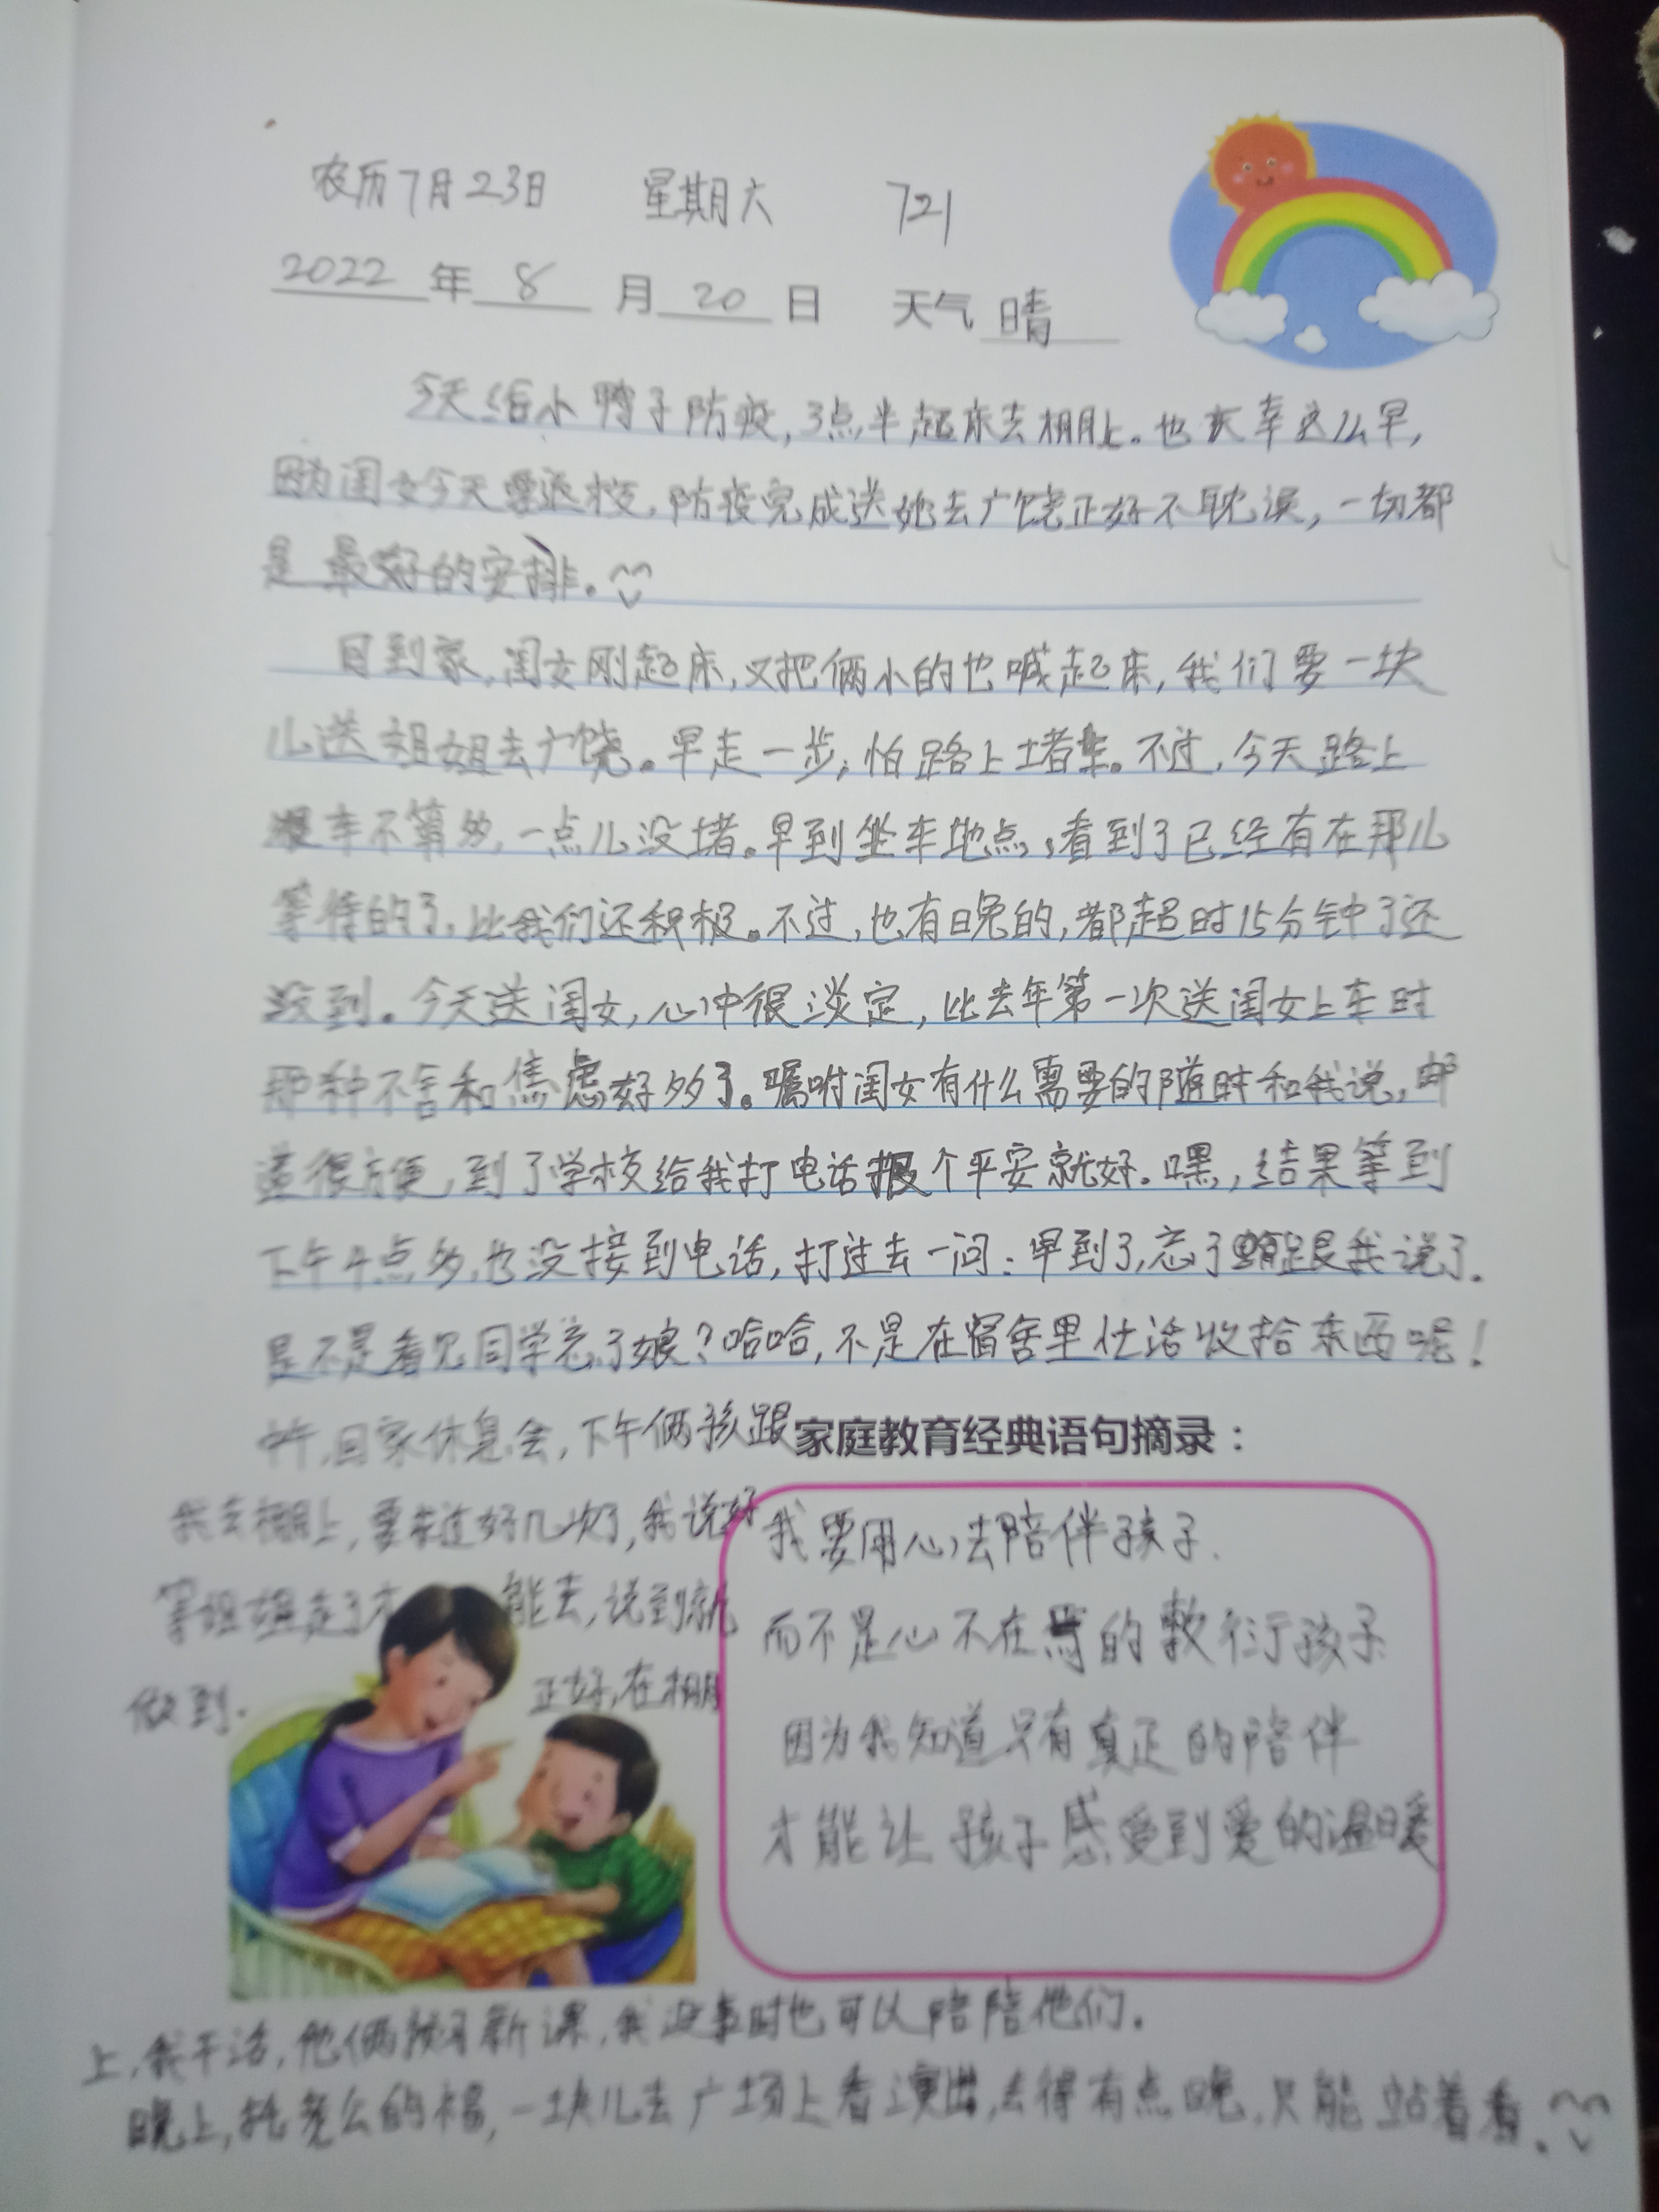 农历7月23日 星期六 721
2022年8月20日 天气晴
今天给小鸭子防疫,3点半起床去棚上。也庆幸这么早,
因为闺女今天要返校,防疫完成送她去广饶正好不耽误,一切都
是最好的安排。
回到家,闺女刚起床,又把俩小的也喊起来,我们要一块
儿送姐姐去广饶。早走一步,怕路上堵车。不过,今天路上
车不算多,一点儿没堵。早到坐车地点,看到了已经有在那儿
等待的了,比我们还积极。不过,也有晚的,都超时15分钟了还
没到。今天送闺女,心中很淡定,比去年第一次送闺女上车时
那种不舍和焦虑好多了。嘱咐闺女有什么需要的随时和我说,邮
递很方便,到了学校给我打电话报个平安就好。嘿,结果等到
下午4点多,也没接到电话,打过去一问:早到了,忘了跟我说了。
是不是看见同学忘了娘?哈哈,不是在宿舍里忙活收拾东西呢!
中午,回家休息会,下午俩孩跟
我去棚上,要求过好几次了,我说好
等姐姐走了才能去,说到就
做到。正好,在棚
家庭教育经典语句摘录:
我要用心去陪伴孩子.
而不是心不在焉的敷衍孩子
因为我知道只有真正的陪伴
才能让孩子感受到爱的温暖
上,我干活,他俩预习新课,我没事时也可以陪陪他们。
晚上,托老公的福,一块儿去广场上看演出,去得有点晚,只能站着看。